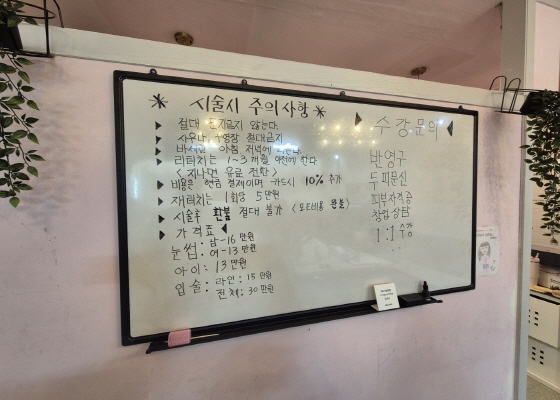 * 시술시 주의사항 *
▶ 절대 문지르지 않는다.
▶ 사우나, 수영장 절대금지
▶ 아침 저녁에
▶ 리터치는 1~3개월 이전에 한다
<지나면 유료 전환>
▶ 비용은 현금 결제이며 카드시 10% 추가
▶ 재터치는 1회당 5만원
▶ 시술후 환불 절대 불가
▶ 가격표 ◀
눈썹: 남-16만원
여-13만원
아이: 13만원
입술: 라인: 15만원
전체: 30만원
▶ 수강문의 ◀
반영구
두피문신
피부자격증
창업상담
1:1 수강